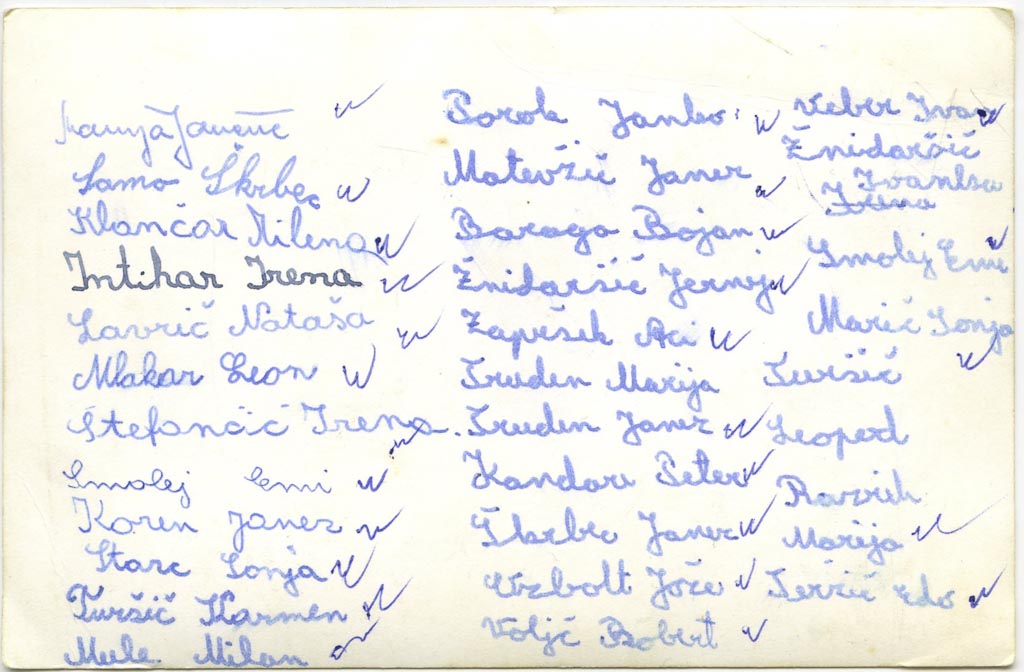 Samo Škrbec
Klančar Milena
Intihar Irena
Lavrič Nataša
Mlakar Leon
Štefančič Irena
Smolej Emi
Koren Janez
Starc Sonja
Turšič Karmen
Mele Milan
Porok Janko
Matevžič Janez
Baraga Bojan
Žnidaršič Jernej
Zapušek Aci
Truden Marija
Truden Janez
Kandare Peter
Škrbec Janez
Uzbolt Jože
Voljč Robert
Veber Ivan
Žnidaršič
Ivanka
Irena
Smolej Emi
Marič Sonja
Turšič
Leoperd
Razrih
Marija
Teržič Edo